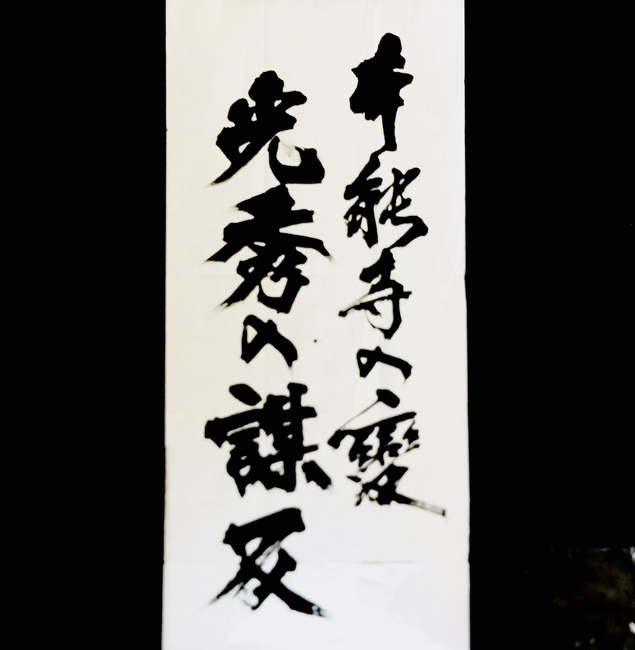 本能寺の變
光秀の謀反